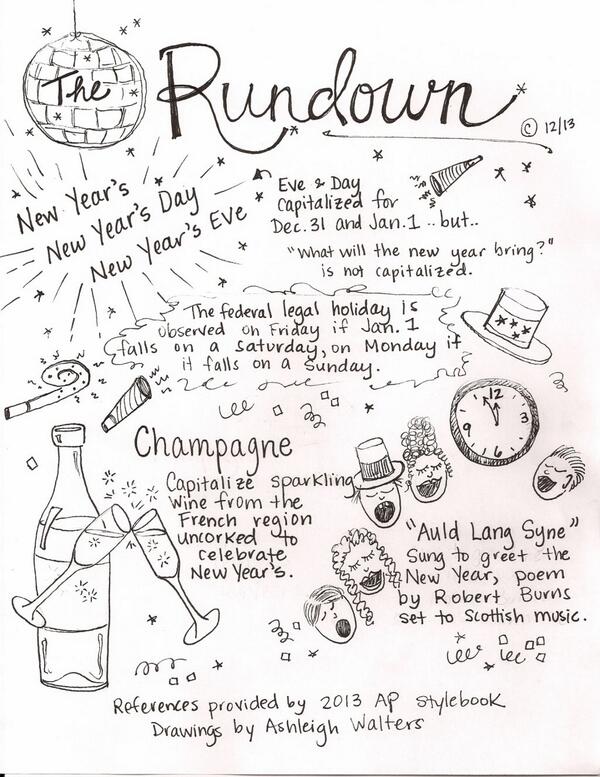 The Rundown
© 12/13
New Year's
New Year's Day
New Year's Eve
Eve & Day
Capitalized for
Dec. 31 and Jan. 1 .. but..
"What will the new year bring?"
is not capitalized.
The federal legal holiday is
observed on Friday if Jan. 1
falls on a Saturday, on Monday if
it falls on a Sunday.
12
3
6
9
Champagne
Capitalize sparkling
wine from the
French region
uncorked to
celebrate
New Year's.
"Auld Lang Syne"
Sung to greet the
New Year, poem
by Robert Burns
set to Scottish music.
References provided by 2013 AP Stylebook
Drawings by Ashleigh Walters